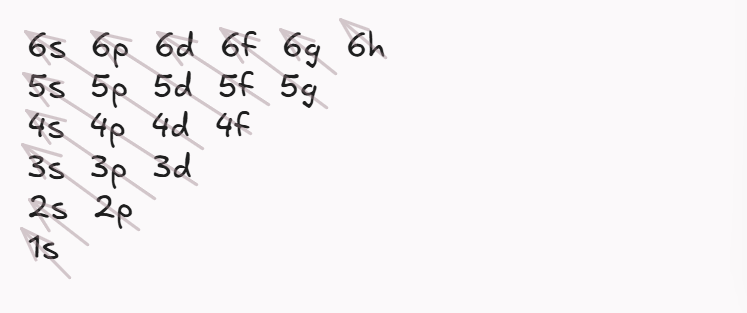 6s 6p 6d 6f 6g 6h
5s 5p 5d 5f 5g
4s 4p 4d 4f
3s 3p 3d
2s 2p
1s